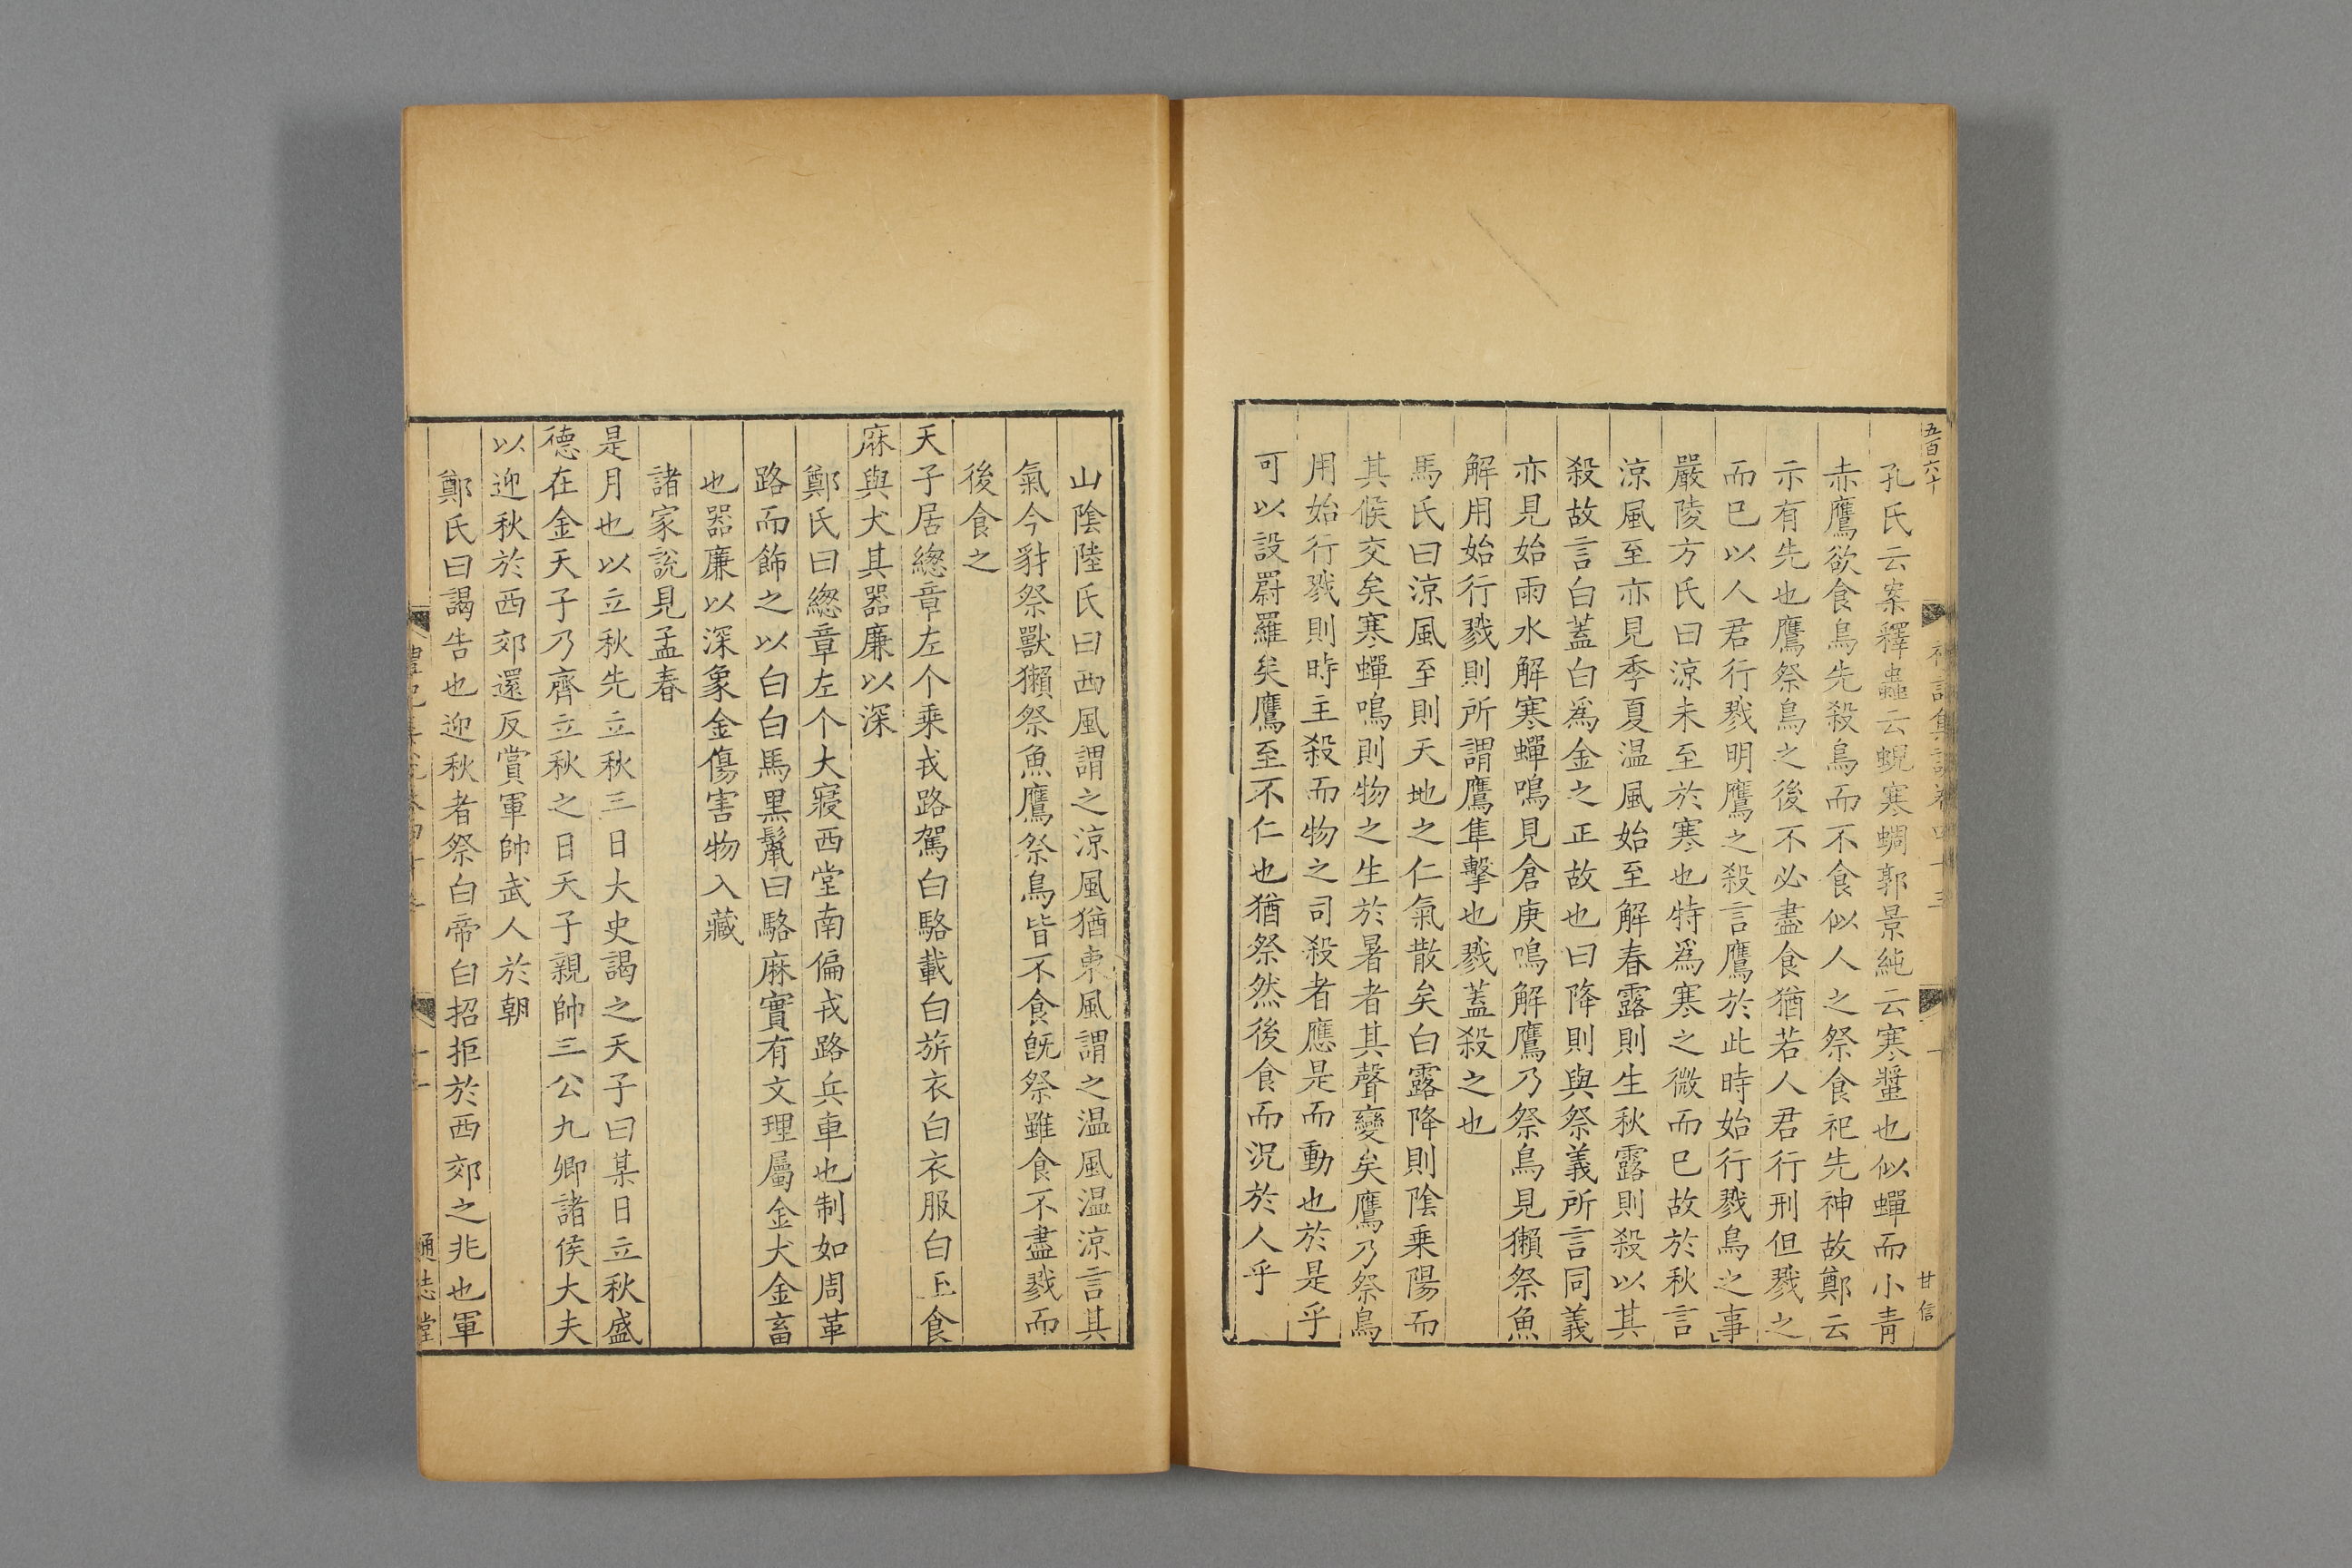 五百六十
甘信
孔氏云案釋蟲云蜺寒蜩郭景純云寒螿也似蟬而小青
赤鷹欲食鳥先殺鳥而不食似人之祭食祀先神故鄭云
示有先也鷹祭鳥之後不必盡食猶若人君行刑但戮之
而已以人君行戮明鷹之殺言鷹於此時始行戮鳥之事
嚴陵方氏曰涼未至於寒也特爲寒之微而已故於秋言
涼風至亦見季夏温風始至解春露則生秋露則殺以其
殺故言白蓋白爲金之正故也曰降則與祭義所言同義
亦見始雨水解寒蟬鳴見倉庚鳴解鷹乃祭鳥見獺祭魚
解用始行戮則所謂鷹隼擊也戮蓋殺之也
馬氏曰涼風至則天地之仁氣散矣白露降則陰乗陽而
其候交矣寒蟬鳴則物之生於暑者其聲變矣鷹乃祭鳥
用始行戮則時主殺而物之司殺者應是而動也於是乎
可以設罻羅矣鷹至不仁也猶祭然後食而況於人乎
山陰陸氏曰西風謂之涼風猶東風謂之温風温涼言其
氣今豺祭獸獺祭魚鷹祭鳥皆不食旣祭雖食不盡戮而
後食之
天子居緫章左个乗戎路駕白駱載白旂衣白衣服白玉食
麻與犬其器廉以深
鄭氏曰緫章左个大寢西堂南偏戎路兵車也制如周革
路而飾之以白白馬黒鬣曰駱麻實有文理屬金犬金畜
也器廉以深象金傷害物入藏
諸家說見孟春
是月也以立秋先立秋三日大史謁之天子曰某日立秋盛
德在金天子乃齊立秋之日天子親帥三公九卿諸侯大夫
以迎秋於西郊還反賞軍帥武人於朝
鄭氏曰謁告也迎秋者祭白帝白招拒於西郊之兆也軍
通志堂